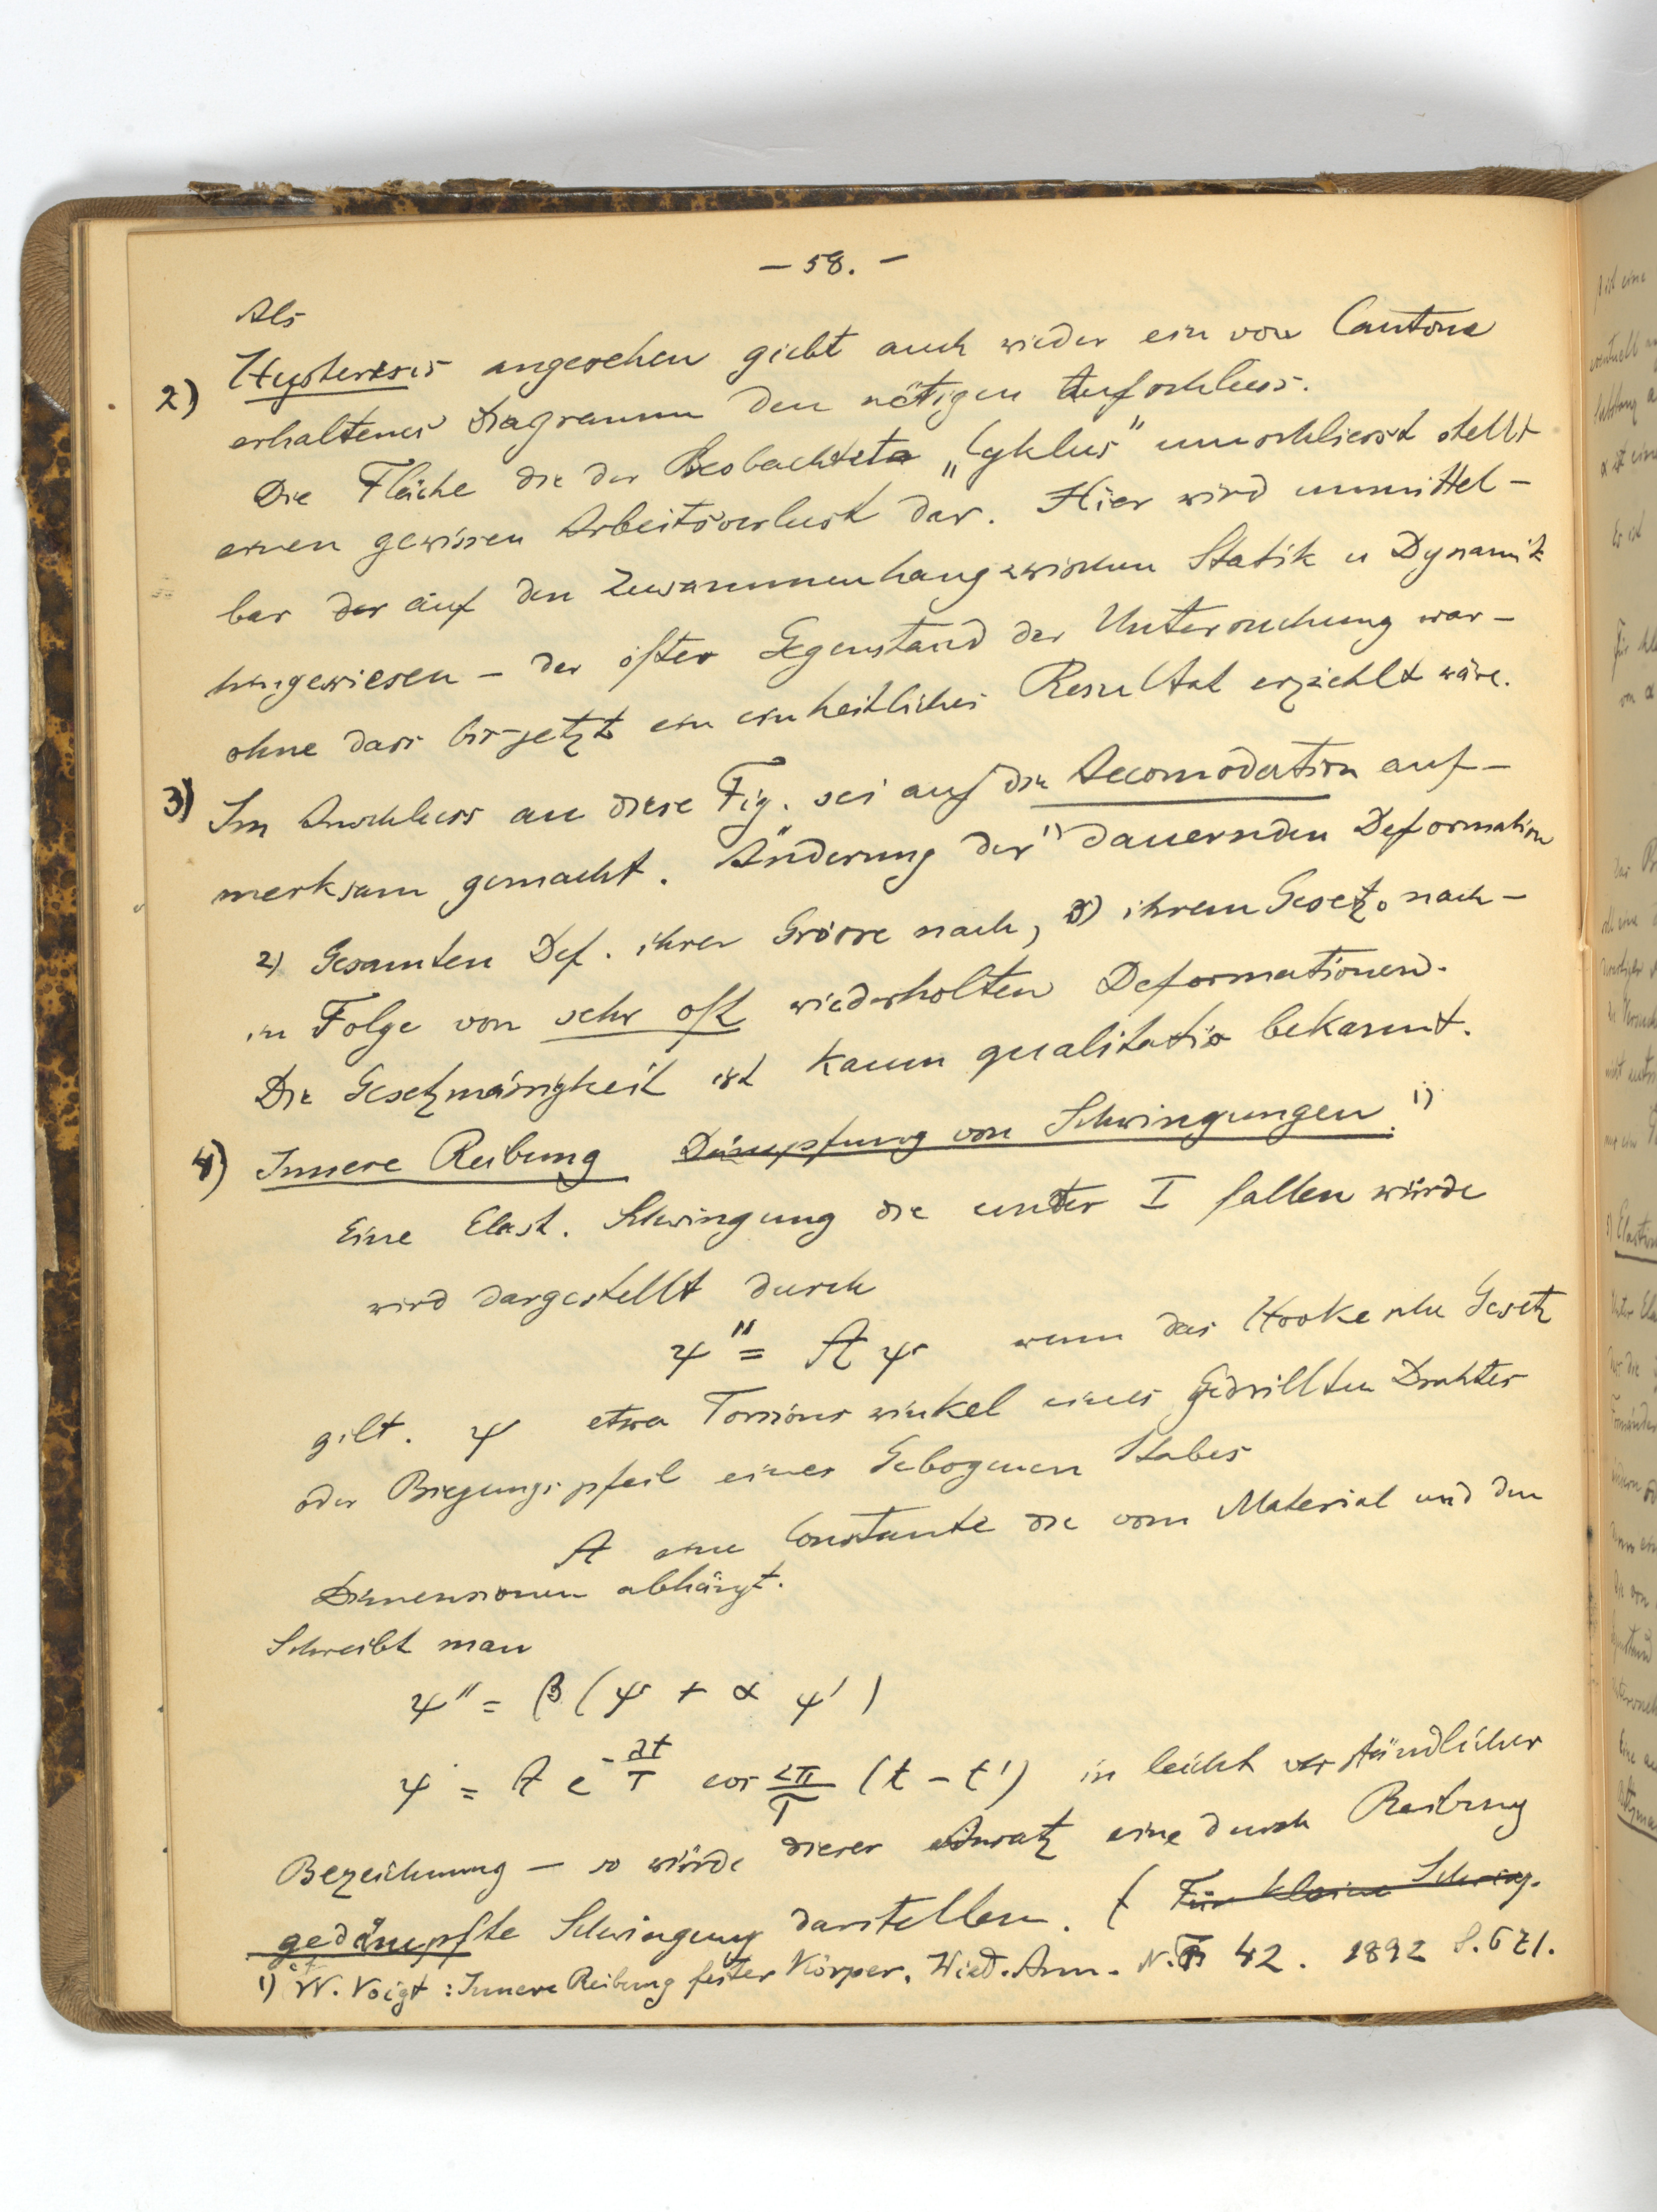 — 58. —
Als
2) Hysteresis angesehen giebt auch wieder ein von Cantone
erhaltenes Diagramm den nötigen Aufschluss.
Die Fläche die der Beobachtete „Cyklus" umschliesst stellt
einen gewissen Arbeitsverlust dar. Hier wird unmittel-
bar der auf den Zusammenhang zwischen Statik u Dynamik
hingewiesen – der öfter Gegenstand der Untersuchung war –
ohne dass bis jetzt ein einheitliches Resultat erziehlt wäre.
3) Im Anschluss an diese Fig. sei auf die Accomodation auf-
merksam gemacht. Änderung der 1) dauernden Deformation
2) Gesamten Def. ihrer Grösse nach, 3) ihrem Gesetze nach –
in Folge von sehr oft wiederholten Deformationen.
Die Gesetzmässigkeit ist kaum qualitativ bekannt.
4) Innere Reibung Dämpfung von Schwingungen. 1)
Eine Elast. Schwingung die unter I fallen würde
wird dargestellt durch
ψ'' = A ψ wenn das Hooke sche Gesetz
gilt. ψ etwa Torsionswinkel eines Gedrillten Drahtes
oder Biegungspfeil eines Gebogenen Stabes
A eine Constante die vom Material und den
Dimensionen abhängt.
Schreibt man
ψ'' = β (ψ + α ψ')
ψ = A e^{-λt/T} cos 2π/T (t – t') in leicht verständlicher
Bezeichnung – so würde dieser Ansatz eine durch Reibung
gedämpfte Schwingung darstellen. ( Für kleine Schwing.
1) cf W. Voigt : Innere Reibung fester Körper. Wied. Ann. N. F. 42. 1892 S. 671.